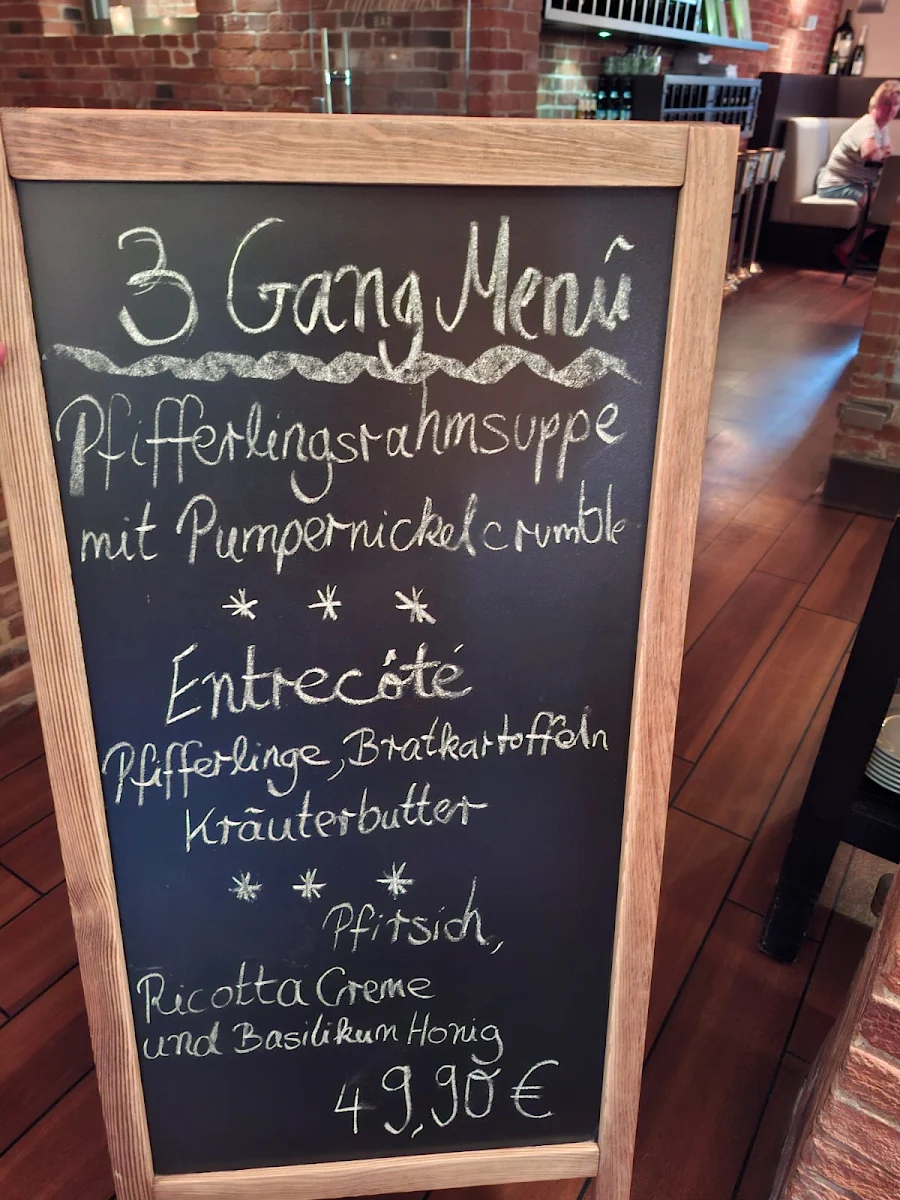 3 Gang Menû
Pfifferlingsrahmsuppe
mit Pumpernickelcrumble
* * *
Entrecôté
Pfifferlinge, Bratkartoffeln
Kräuterbutter
* * *
Pfirsich,
Ricotta Creme
und Basilikum Honig
49,90 €